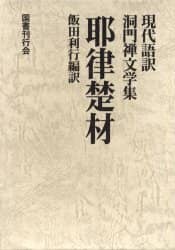 現代語訳
洞門禅文学集
耶律楚材
飯田利行編訳
国書刊行会